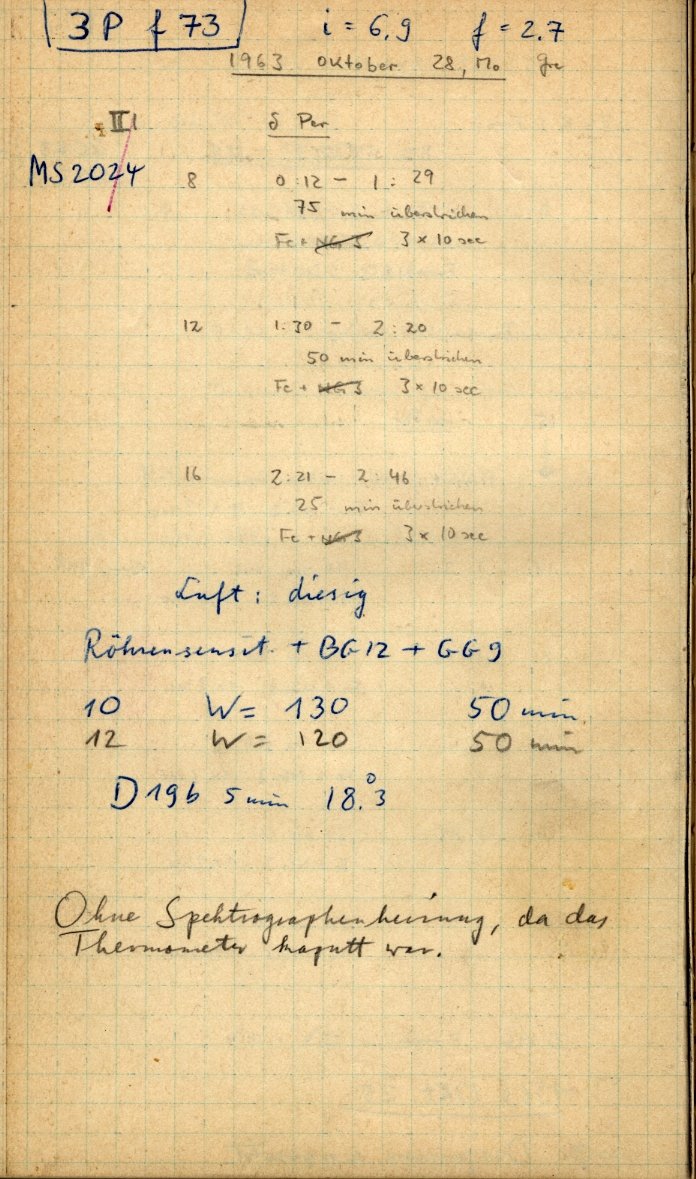 3P f 73 i = 6,9 f = 2,7
1963 Oktober 28, Mo
II δ Per
MS 2024
8 0:12 - 1:29
75 min überstrichen
Fe + NG 3 3 x 10 sec
12 1:30 - 2:20
50 min überstrichen
Fe + NG 3 3 x 10 sec
16 2:21 - 2:46
25 min überstrichen
Fe + NG 3 3 x 10 sec
Luft: diesig
Röhrensensit. + BG 12 + GG 9
10 W = 130 50 min
12 W = 120 50 min
D 19b 5 min 18.°3
Ohne Spektrographenheizung, da das
Thermometer kaputt war.